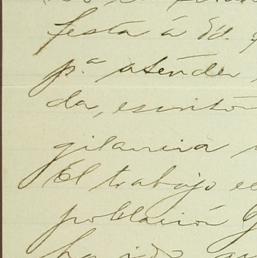 festa á Ud.
p.ª aténder
da, escritó
gilancia
El trabajo
población G
ha ido